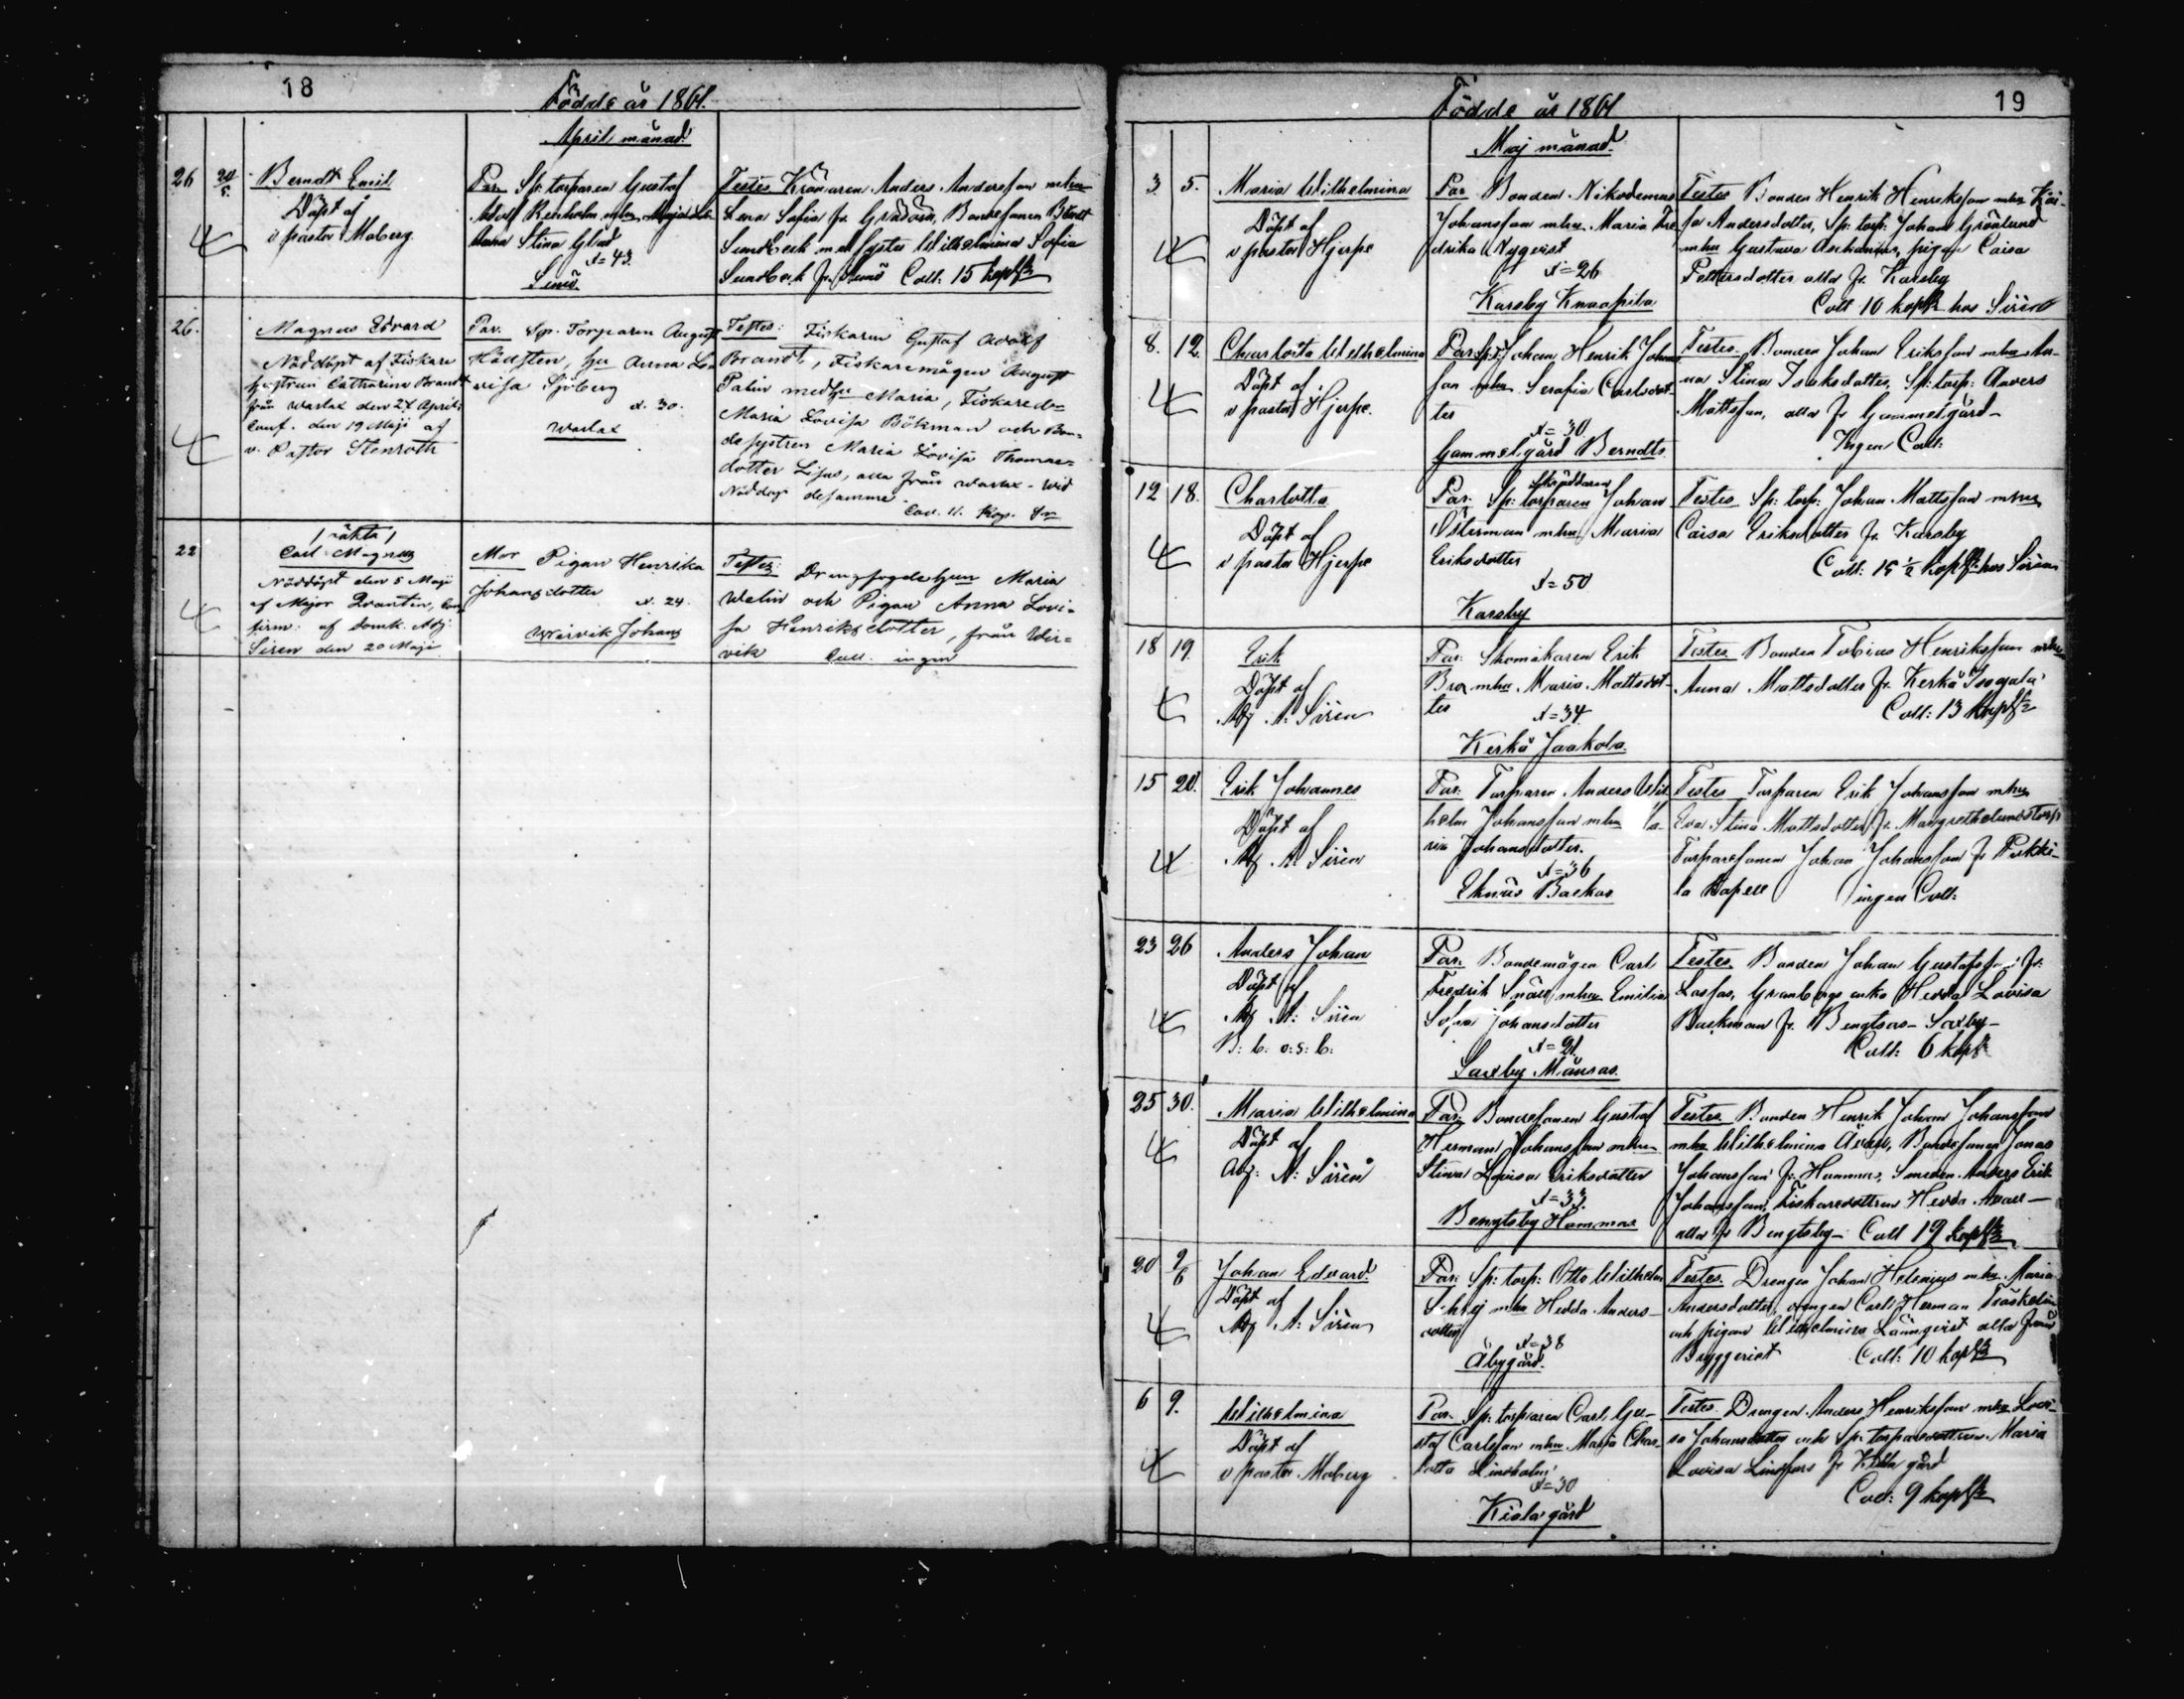 18
Födde år 1861.
April månad
26 20/5 Berndt Emil
Döpt af
v pastor Moberg.
Par. Sp: torparen Gustaf
Adolf Renholm mhu
Anna Stina Glad
x=43.
Testes Krönaren Anders Andersson mhu
Lena Sofia fr. Bondesonen Berndt
Sundbeck med syster Wilhelmina Sofia
Sundbeck fr. Coll: 15 kop Sr
26. Magnus Edvard
Nöddöpt af Fiskare
hustrun Catharina Brandt
från Warlax den 27 April;
Conf. den 19 Maji af
v. Pastor Stenroth
Par. Sp. Torparen August
Hu Anna Lo-
visa Sjöberg
x. 30.
Warlax
Testes: Fiskaren Gustaf Adolf
Brandt, Fiskaremågen August
Palin med Hu Maria, Fiskaredr
Maria Lovisa Bökman och Bon-
desystren Maria Lovisa Thomas-
dotter Lisas, alla från Warlax - Wid
Nöddop desamme
Coll. 11. Kop. Sr
22 / oäkta /
Carl Magnus
Nöddöpt den 5 Maji
af Major Qvantin, Con-
firm: af domk. Adj:
Siren den 20 Maji
Mor Pigan Henrika
Johansdotter
x. 24.
Wirvik Johans
Testes: Drängfogdehun Maria
Walin och Pigan Anna Lovi-
sa Henriksdotter, från Wir-
vik Coll. ingen
19
Födde år 1861
Maj månad
3. 5. Maria Wilhelmina
Döpt af
v pastor Hjerpe
Par Bonden Nikodemus
Johansson mhu Maria Fre-
drika Nyqvist
x=26
Karsby Knaapila
Testes Bonden Henrik Henriksson mhu Kai-
sa Andersdotter, Sp: torp: Johan Grönlund
mhu Gustava pigan Caisa
Pettersdotter alla fr. Karsby
Coll 10 kop Sr hos Sirén
8. 12. Charlotta Wilhelmina
Döpt af
v pastor Hjerpe.
Par. Johan Henrik Johans-
son mhu Serafia Carlsdot-
ter
x=30
Gammelgård Berndts
Testes. Bonden Johan Eriksson mhu An-
na Stina Isaksdotter, Sp: torp: Anders
Mattsson, alla fr Gammelgård-
Ingen Coll:
12 18. Charlotta
Döpt af
v pastor Hjerpe
Par. Sp: torparen Skräddaren Johan
Österman mhu Maria
Eriksdotter
x=50
Karsby
Testes Sp: torp: Johan Mattsson mhu
Caisa Eriksdotter fr. Karsby
Coll: 15 ½ kop Sr hos Sirén
18 19. Erik
Döpt af
Adj A: Sirén
Par: Skomakaren Erik
Bro mhu Maria Mattsdot-
ter
x=34
Kerkö Jaakola.
Testes Bonden Tobias Henriksson mhu
Anna Mattsdotter fr. Kerkö
Coll: 13 kop Sr
15 20. Erik Johannes
Döpt af
Adj A: Sirén
Par: Torparen Anders Wil-
helm Johansson mhu Ca-
rin Johansdotter.
x=36
Eknäs Backas
Testes Torparen Erik Johansson mhu
Eva Stina Mattsdotter fr. Margrethelunds torp
Torparesonen Johan Johansson fr Pukki-
la Kapell ingen Coll:
23 26 Anders Johan
Döpt af
Adj A: Sirén
B: b: o: s: b:
Par. Bondemågen Carl
Fredrik Snäll mhu Emilia
Sofia Johansdotter
x=21
Saxby Månsas
Testes Bonden Johan Gustafsson fr.
Lassas, Granbergs enka Hedda Lovisa
Backman fr. Bengtsas - Saxby -
Coll: 6 kop
25 30. Maria Wilhelmina
Döpt af
Adj: A: Sirén
Par. Bondesonen Gustaf
Herman Johansson mhu
Stina Lovisa Eriksdotter
x=33.
Bengtsby Hammas
Testes Bonden Henrik Johan Johansson
mhu Wilhelmina Bondesonen Jonas
Johansson fr. Hammas, Smeden Anders Erik
Johansson, Fiskaredottren Hedda
alla fr Bengtsby - Coll 19 kop Sr
20 2/6 Johan Edvard.
Döpt af
Adj A: Sirén
Par: Sp: torp: Otto Wilhelm
mhu Hedda Anders-
dotter
x=38
Åbygård.
Testes. Drengen Johan Helenius mhu Maria
Andersdotter, drengen Carl Herman Träskelin
och pigan Wilhelmina Lönnqvist alla från
Bryggeriet Coll: 10 kop Sr
6 9. Wilhelmina
Döpt af
v pastor Moberg
Par. Sp: torparen Carl Gu-
staf Carlsson mhu Maria Char-
lotta Lindholm
x=30
Kiala gård
Testes. Drengen Anders Henriksson mhu Lovi-
sa Johansdotter och Sp: torparedottren Maria
Lovisa Lindfors fr Kiala gård
Coll: 9 kop Sr